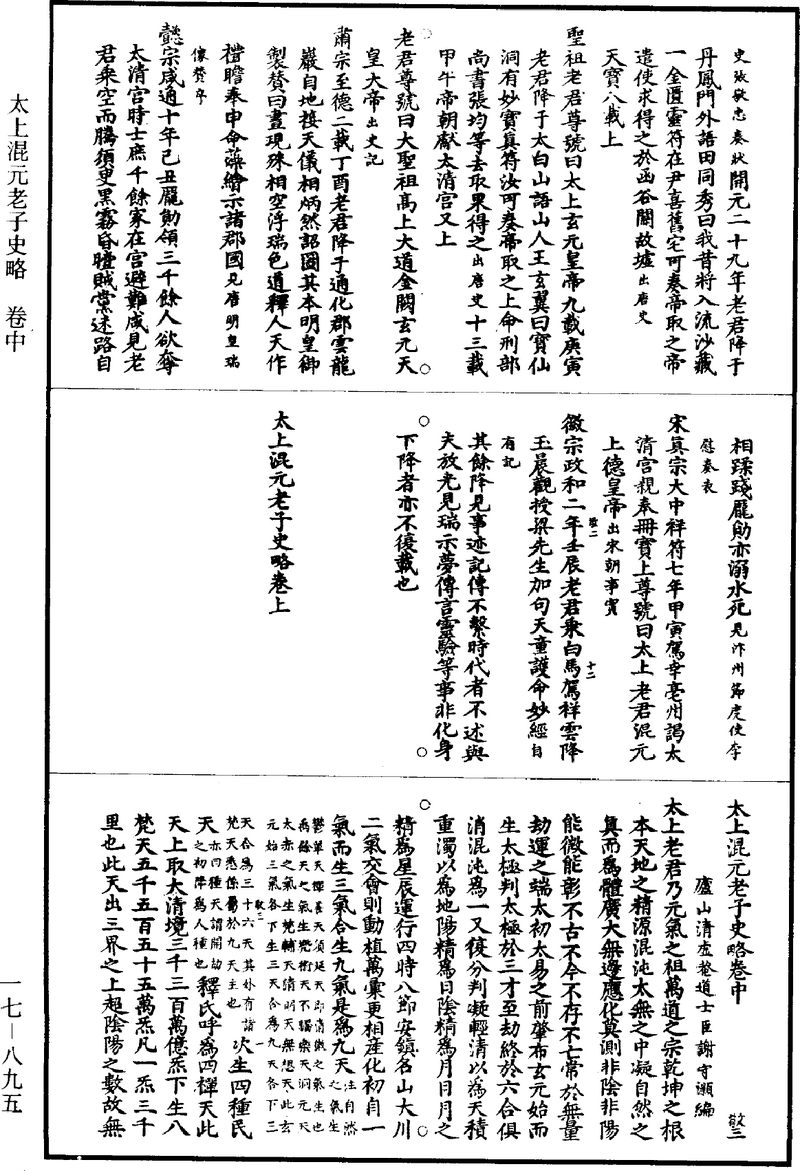 太上混元老子史略　卷中
一七—八九五
史張敬忠奏狀開元二十九年老君降于
丹鳳門外語田同秀曰我昔將入流沙藏
一金匱靈符在尹喜舊宅可奏帝取之帝
遣使求得之於函谷關故墟出唐史
天寶八載上
聖祖老君尊號曰太上玄元皇帝九載庚寅
老君降于太白山語山人王玄翼曰寶仙
洞有妙寶真符汝可奏帝取之上命刑部
尚書張均等去取果得之出唐史十三載
甲午帝朝獻太清宮又上
老君尊號曰大聖祖高上大道金闕玄元天
皇大帝出史記
肅宗至德二載丁酉老君降于通化郡雲龍
巖自地接天儀相炳然詔圖其本明皇御
製贊曰晝現殊相空浮瑞色道釋人天作
禮瞻奉申命藻繪示諸郡國見唐明皇瑞
像贊序
懿宗咸通十年己丑龐勛領三千餘人欲奪
太清宮時士庶千餘家在宮避難咸見老
君乘空而騰須臾黑霧昏曀賊黨迷路自
相蹂踐龐勛亦溺水死見汴州節度使李
慰奏表
宋真宗大中祥符七年甲寅駕幸亳州謁太
清宮親奉冊寶上尊號曰太上老君混元
上德皇帝出宋朝事實
敬二
十二
徽宗政和二年壬辰老君乘白馬駕祥雲降
玉晨觀授梁先生加句天童護命妙經自
有記
其餘降見事迹記傳不繫時代者不述與
夫放光見瑞示夢傳言靈驗等事非化身
下降者亦不復載也
太上混元老子史略卷上
太上混元老子史略卷中
敬三
廬山清虛菴道士臣謝守灝編
太上老君乃元氣之祖萬道之宗乾坤之根
本天地之精源混沌太無之中凝自然之
真而為體廣大無邊應化莫測非陰非陽
能微能彰不古不今不存不亡常於無量
劫運之端太初太易之前肇布玄元始而
生太極判太極於三才至劫終於六合俱
消混沌為一又復分判凝輕清以為天積
重濁以為地陽精為日陰精為月日月之
精為星辰運行四時八節安鎮名山大川
二氣交會則動植萬彙更相產化初自一
氣而生三氣合生九氣是為九天注自然之氣生
鬱單天禪善天須延天即清微之氣生也
禹餘天之氣生寂術天不驕樂天洞元天
太赤之氣生梵輔天清明天無想天此玄
元始三氣各下生三天合為九天各下三
天合為三十六天其外有諸
梵天悉係屬於九天主也
敬三
一
次生四種民
天亦四種天謂開劫之初降為人種也釋氏呼為四禪天此
天上取大清境三千三百萬億炁下生八
梵天五千五百五十五萬炁凡一炁三千
里也此天出三界之上超陰陽之數故無